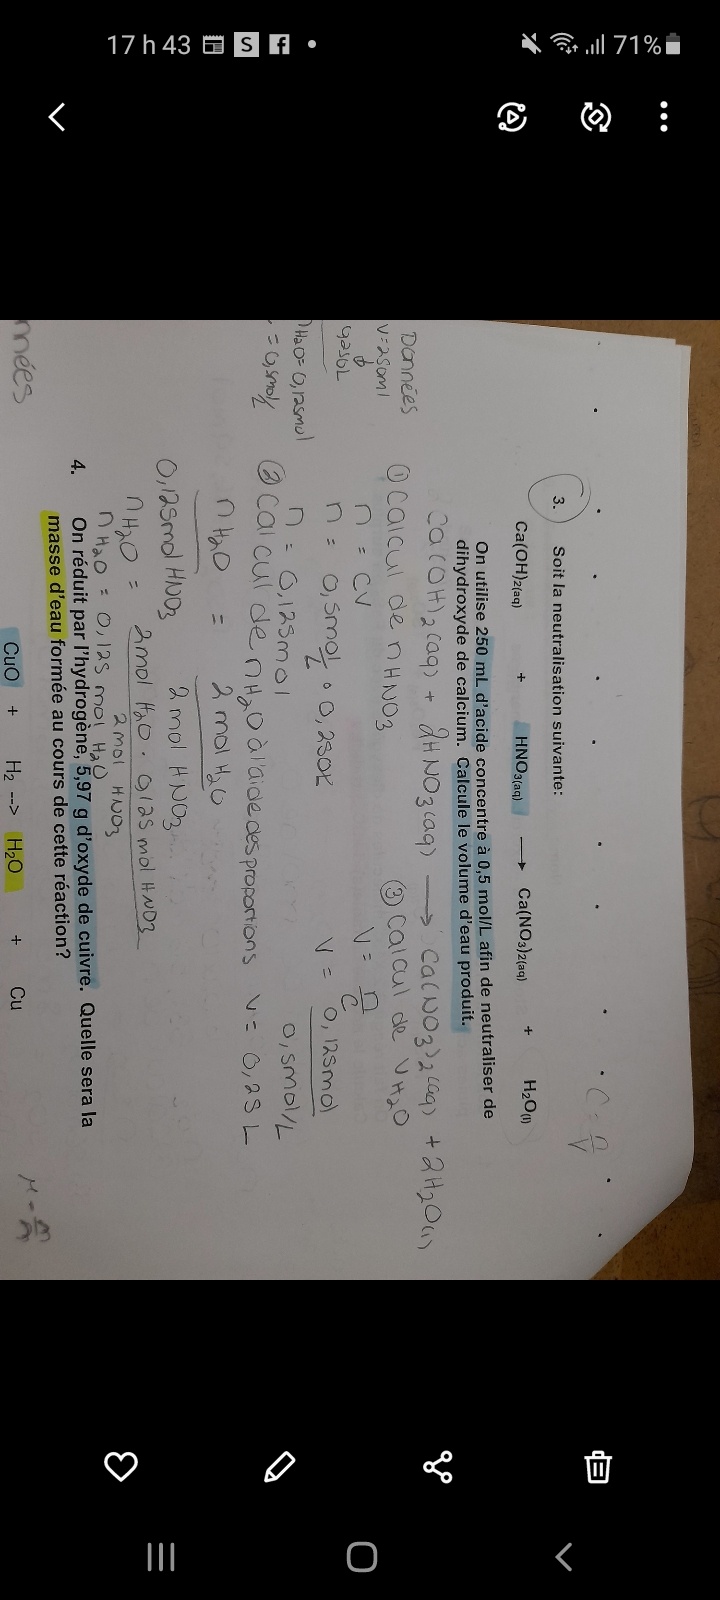 17 h 43
71%
C = n/V
3. Soit la neutralisation suivante:
Ca(OH)2(aq) + HNO3(aq) ⟶ Ca(NO3)2(aq) + H2O(l)
On utilise 250 mL d'acide concentre à 0,5 mol/L afin de neutraliser de
dihydroxyde de calcium. Calcule le volume d'eau produit.
Ca(OH)2(aq) + 2HNO3(aq) ⟶ Ca(NO3)2(aq) + 2H2O(l)
Données
V=250ml
0,250L
nH2O=0,125mol
= 0,5mol/L
① Calcul de nHNO3
n = CV
n = 0,5mol/L • 0,250L
n = 0,125mol
② Calcul de nH2O à l'aide des proportions
nH2O = 2mol H2O
0,125mol HNO3 2mol HNO3
nH2O = 2mol H2O • 0,125mol HNO3
2mol HNO3
nH2O = 0,125 mol H2O
③ Calcul de VH2O
V = n/C
V = 0,125mol
0,5mol/L
V = 0,25 L
4. On réduit par l'hydrogène, 5,97 g d'oxyde de cuivre. Quelle sera la
masse d'eau formée au cours de cette réaction?
CuO + H2 --> H2O + Cu
nnées